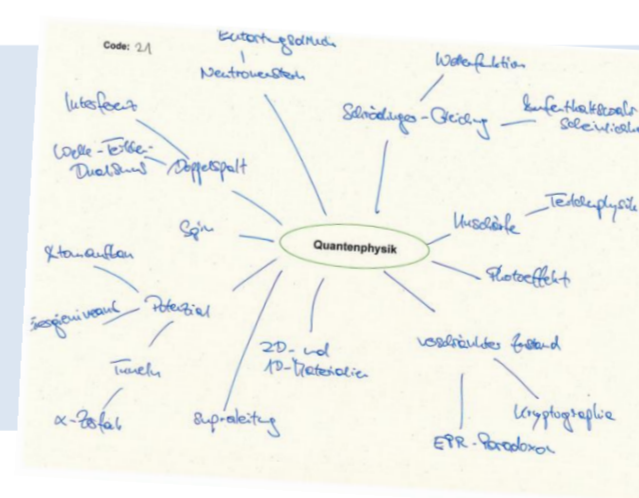 Code: 21
Entartungsdruck
Neutronenstern
Wellenfunktion
Schrödinger-Gleichung
Aufenthaltswahr
scheinlichk
Interferenz
Welle-Teilchen-
Dualismus
Doppelspalt
Spin
Quantenphysik
Unschärfe
Teilchenphysik
Photoeffekt
Atomaufbau
Energieniveaus
Potenzial
Tunneln
α-Zerfall
Supraleitung
2D- und
1D-Materialien
verschränkter Zustand
EPR-Paradoxon
Kryptographie